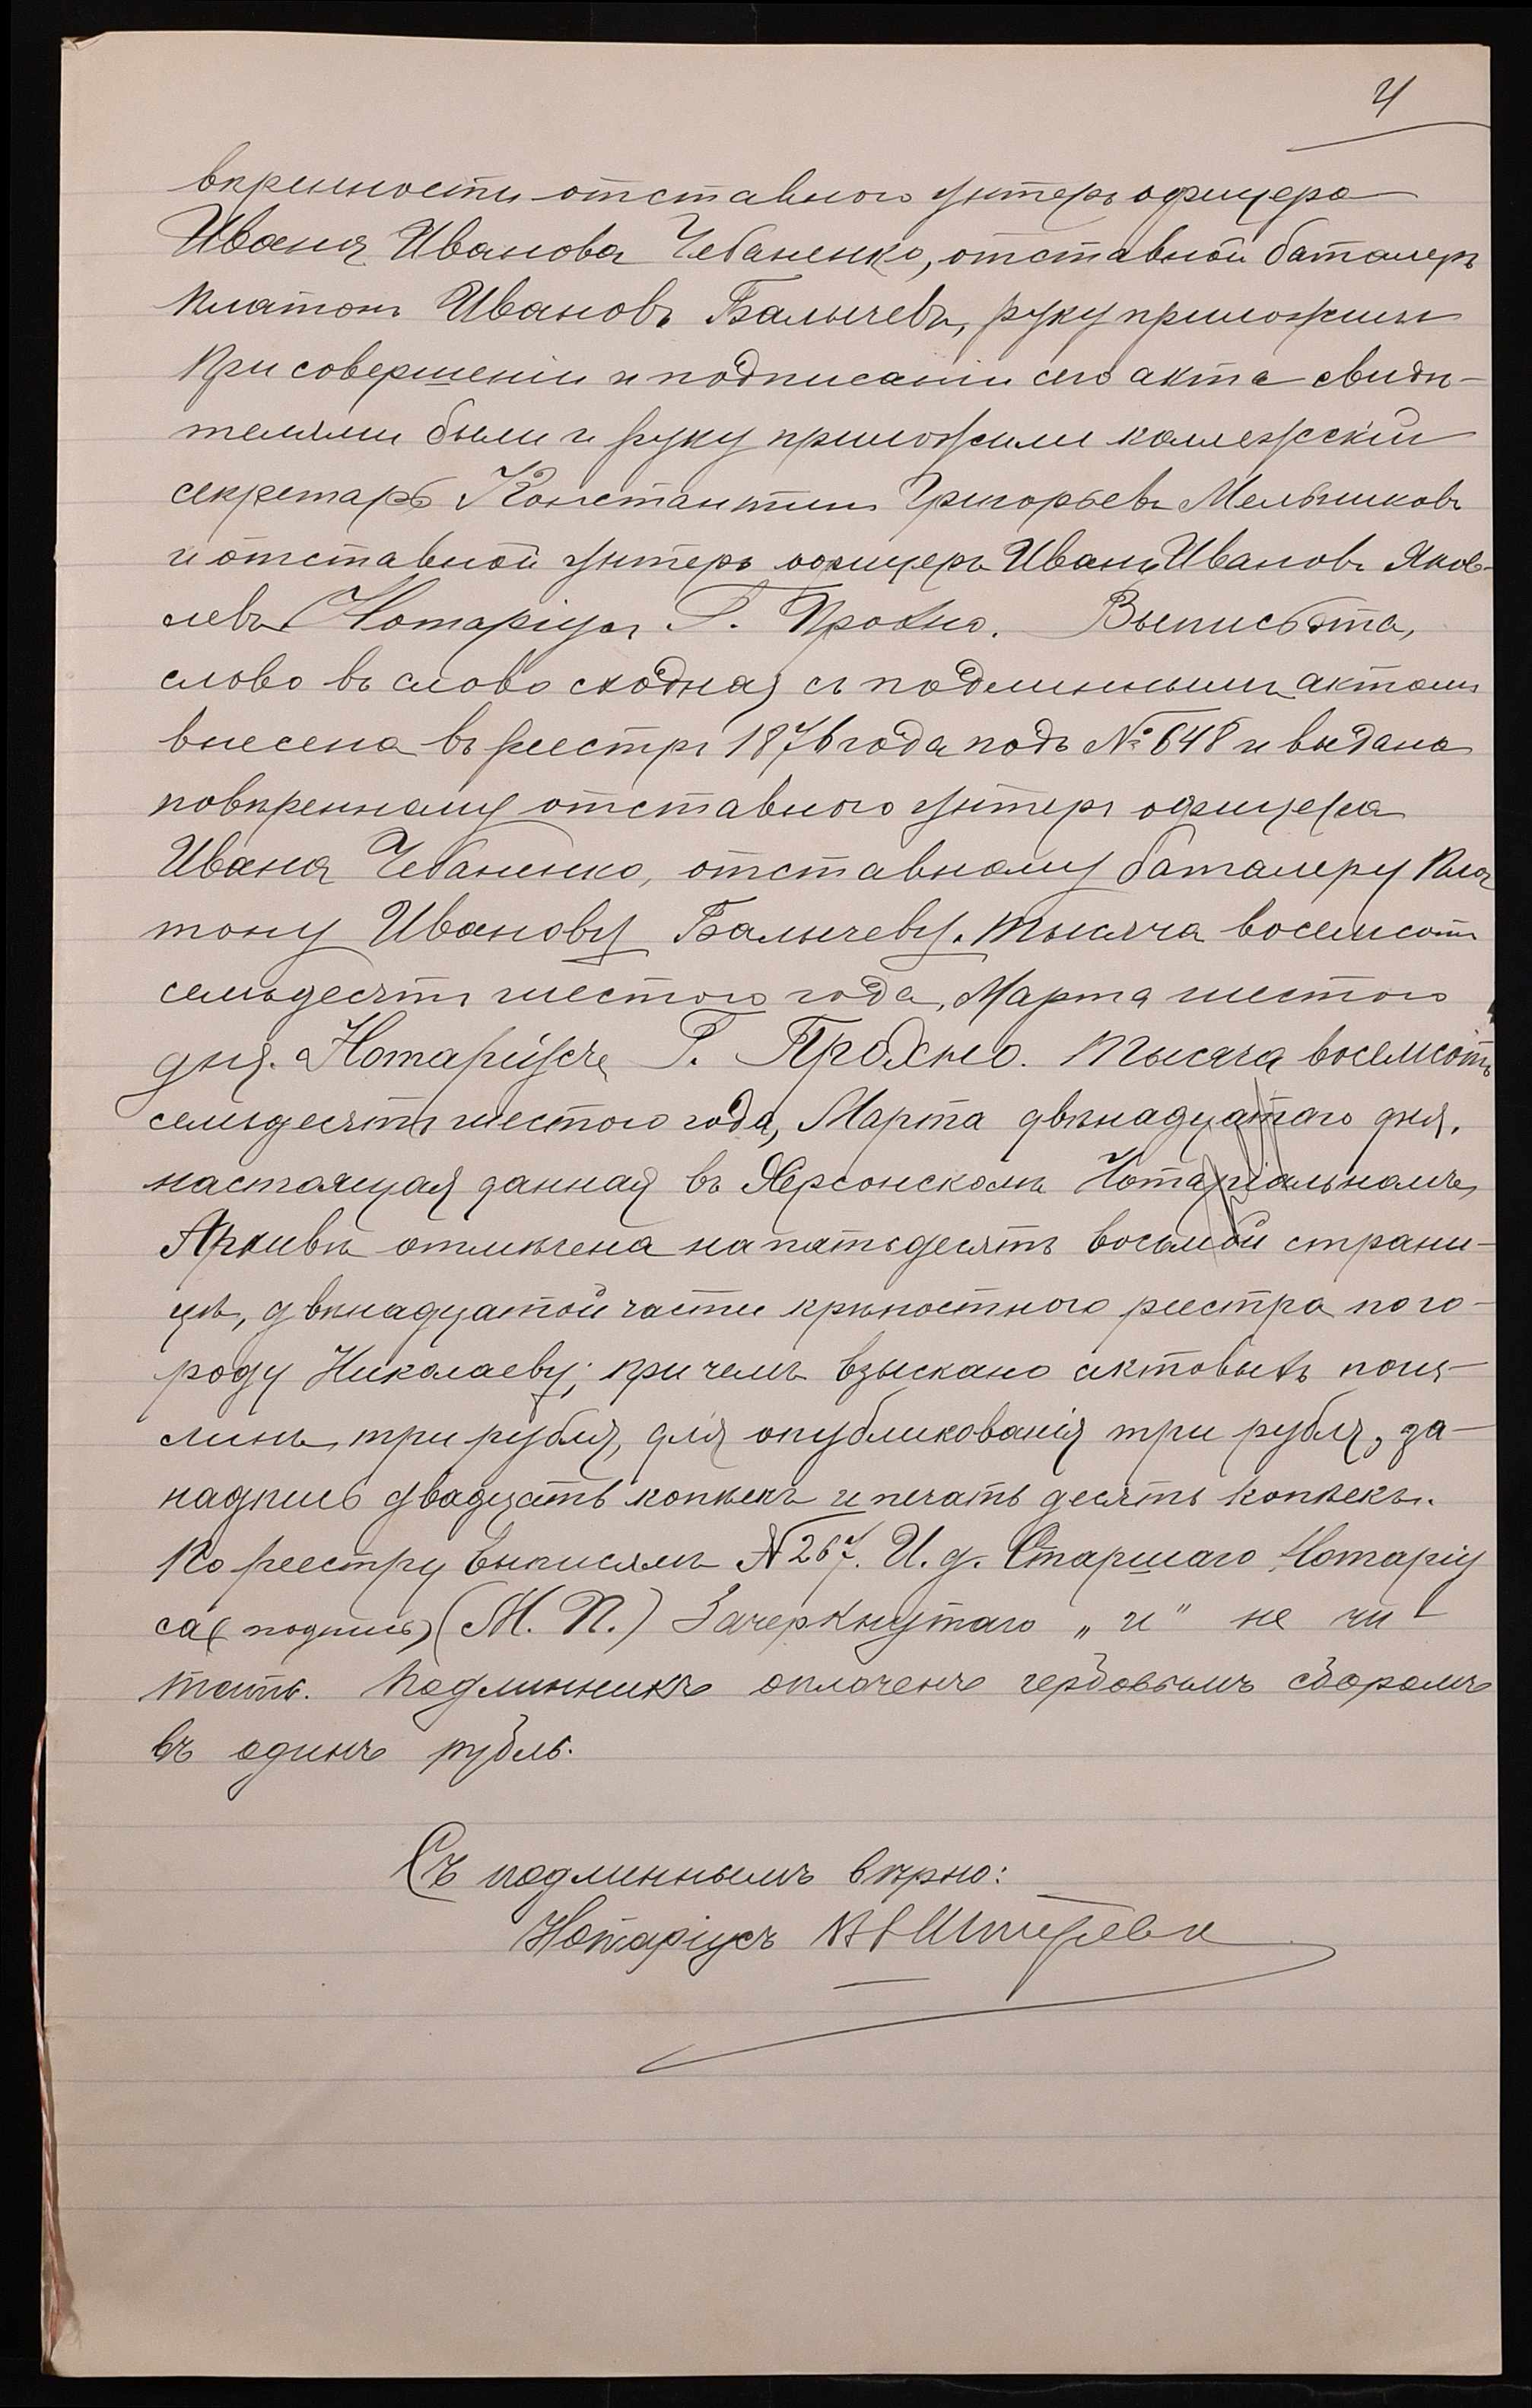 4
вѣренности отставного унтеръ офицера
Ивана Иванова Чебаненко, отставной баталеръ
Платонъ Ивановъ Балычевъ, руку приложилъ
При совершеніи и подписаніи сего акта свидѣ-
телями были и руку приложили коллежскій
секретарь Константинъ Григорьевъ Мельниковъ
и отставной унтеръ офицеръ Иванъ Ивановъ Яков-
левъ Нотаріусъ Г. Прохно. Выпись эта,
слово въ слово сходная съ подлиннымъ актомъ
внесена въ реестръ 1876 года подъ № 648 и выдана
повѣренному отставного унтеръ офицера
Ивана Чебаненко, отставному баталеру Пла
тону Иванову Балычеву. Тысяча восемсотъ
семьдесятъ шестого года, Марта шестого
дня. Нотаріусъ Г. Прохно. Тысяча восемсотъ
семьдесятъ шестого года, Марта двѣнадцатаго дня.
настоящая данная въ Херсонскомъ Нотаріальномъ
Архивѣ отмѣчена на пятьдесятъ восьмой страни-
цѣ, двѣнадцатой части крѣпостного реестра по го-
роду Николаеву; при чемъ взыскано актовыхъ пош-
линъ три рубля, для опубликованія три рубля, за-
надпись двадцать копѣекъ и печать десять копѣекъ.
По реестру выписямъ № 267. И. д. Старшаго Нотаріу
са (подпись) (М. П.) Зачеркнутаго „и" не чи-
тать. Подлинникъ оплаченъ гербовымъ сборомъ
въ одинъ рубль.
Съ подлиннымъ вѣрно:
Нотаріусъ